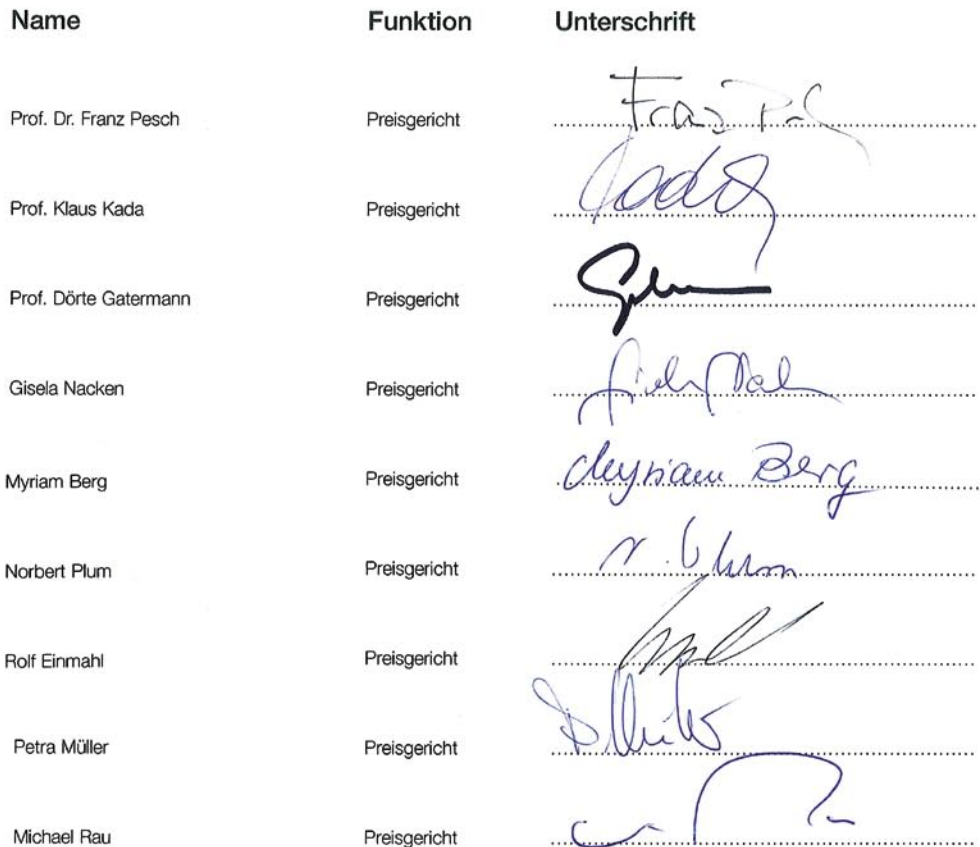 Name Funktion Unterschrift
Prof. Dr. Franz Pesch Preisgericht Franz
Prof. Klaus Kada Preisgericht Kada
Prof. Dörte Gatermann Preisgericht
Gisela Nacken Preisgericht
Myriam Berg Preisgericht Myriam Berg
Norbert Plum Preisgericht N. Plum
Rolf Einmahl Preisgericht
Petra Müller Preisgericht
Michael Rau Preisgericht